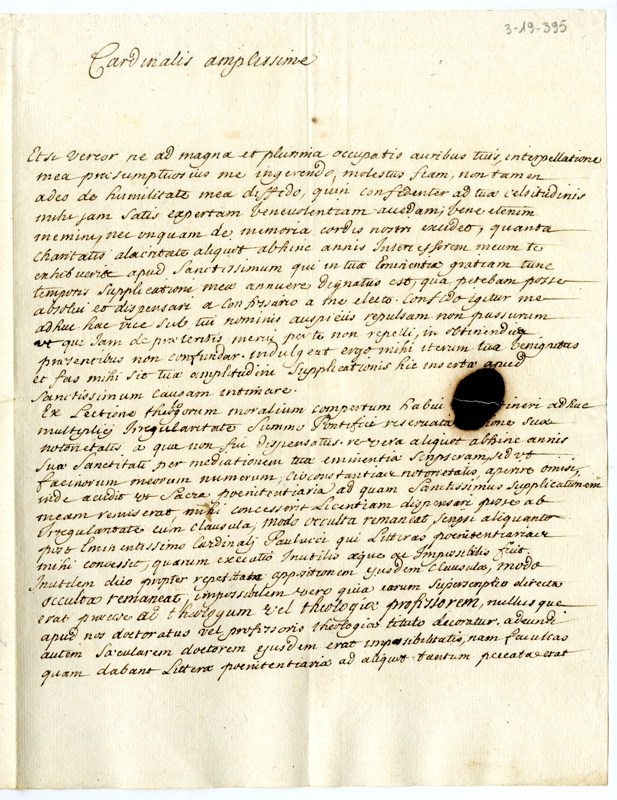 3-19-395
Cardinalis amplissime
Etsi vereor ne ad magna et plurima occupatis auribus tuis, interpellatione
mea præsumptuosius me ingerendo, molestus fiam, non tamen
adeo de humilitate mea diffido, quin confidenter ad tuæ celsitudinis
mihi jam satis expertam benevolentiam accedam; bene etenim
memini, nec unquam de memoria cordis nostri excidet, quanta
charitatis alacritate aliquot abhinc annis Intercessorem meum te
exhibueris apud Sanctissimum qui in tuæ Eminentiæ gratiam tunc
temporis supplicatione meæ annuere dignatus est, qua petebam posse
absolvi et dispensari a Confessario a me electo. Confido igitur me
adhuc hac vice sub tui nominis auspiciis repulsam non passurum
ut que jam de præteritis merui per te non repelli, in obtinendis
præsentibus non confundar. indulgeat ergo mihi iterum tua benignitas
et fas mihi sit tuæ amplitudini supplicationis hic insertæ apud
Sanctissimum causam intimare.
Ex Lectione theologorum moralium compertum habui ineri adhuc
multiplici Irregularitate Summo Pontifici reservata ione suæ
notorietatis, a que non fui dispensatus. revera aliquot abhinc annis
Suæ Sanctitati per mediationem tuæ eminentiæ scripseram, sed ut
facinorum meorum numerum, circonstantiæ notorietatis, aperire omisi,
inde accidit ut Sacra poenitentiaria ad quam Sanctissimus supplicationem
meam remiserat mihi concesserit Licentiam dispensari posse ab
Irregularitate cum clausula; modo occulta remaneat, scripsi aliquanto
post Eminentissimo Cardinali Paulucci qui Litteras poenitentiariæ
mihi concessit, quarum executio Inutilis æque ac Impossibilis fuit,
Inutilem dico propter repetitam appositionem ejusdem clausulæ, modo
occulta remaneat, impossibilem vero quia earum superscriptio directa
erat præcise ad theologum vel theologiæ professorem, nullus que
apud nos doctoratus vel professoris theologiæ titulo decoratur. adeundi
autem sæcularem doctorem ejusdem erat impossibilitatis, nam facultas
quam dabant Litteræ poenitentiaria ad aliquot tantum peccata erat